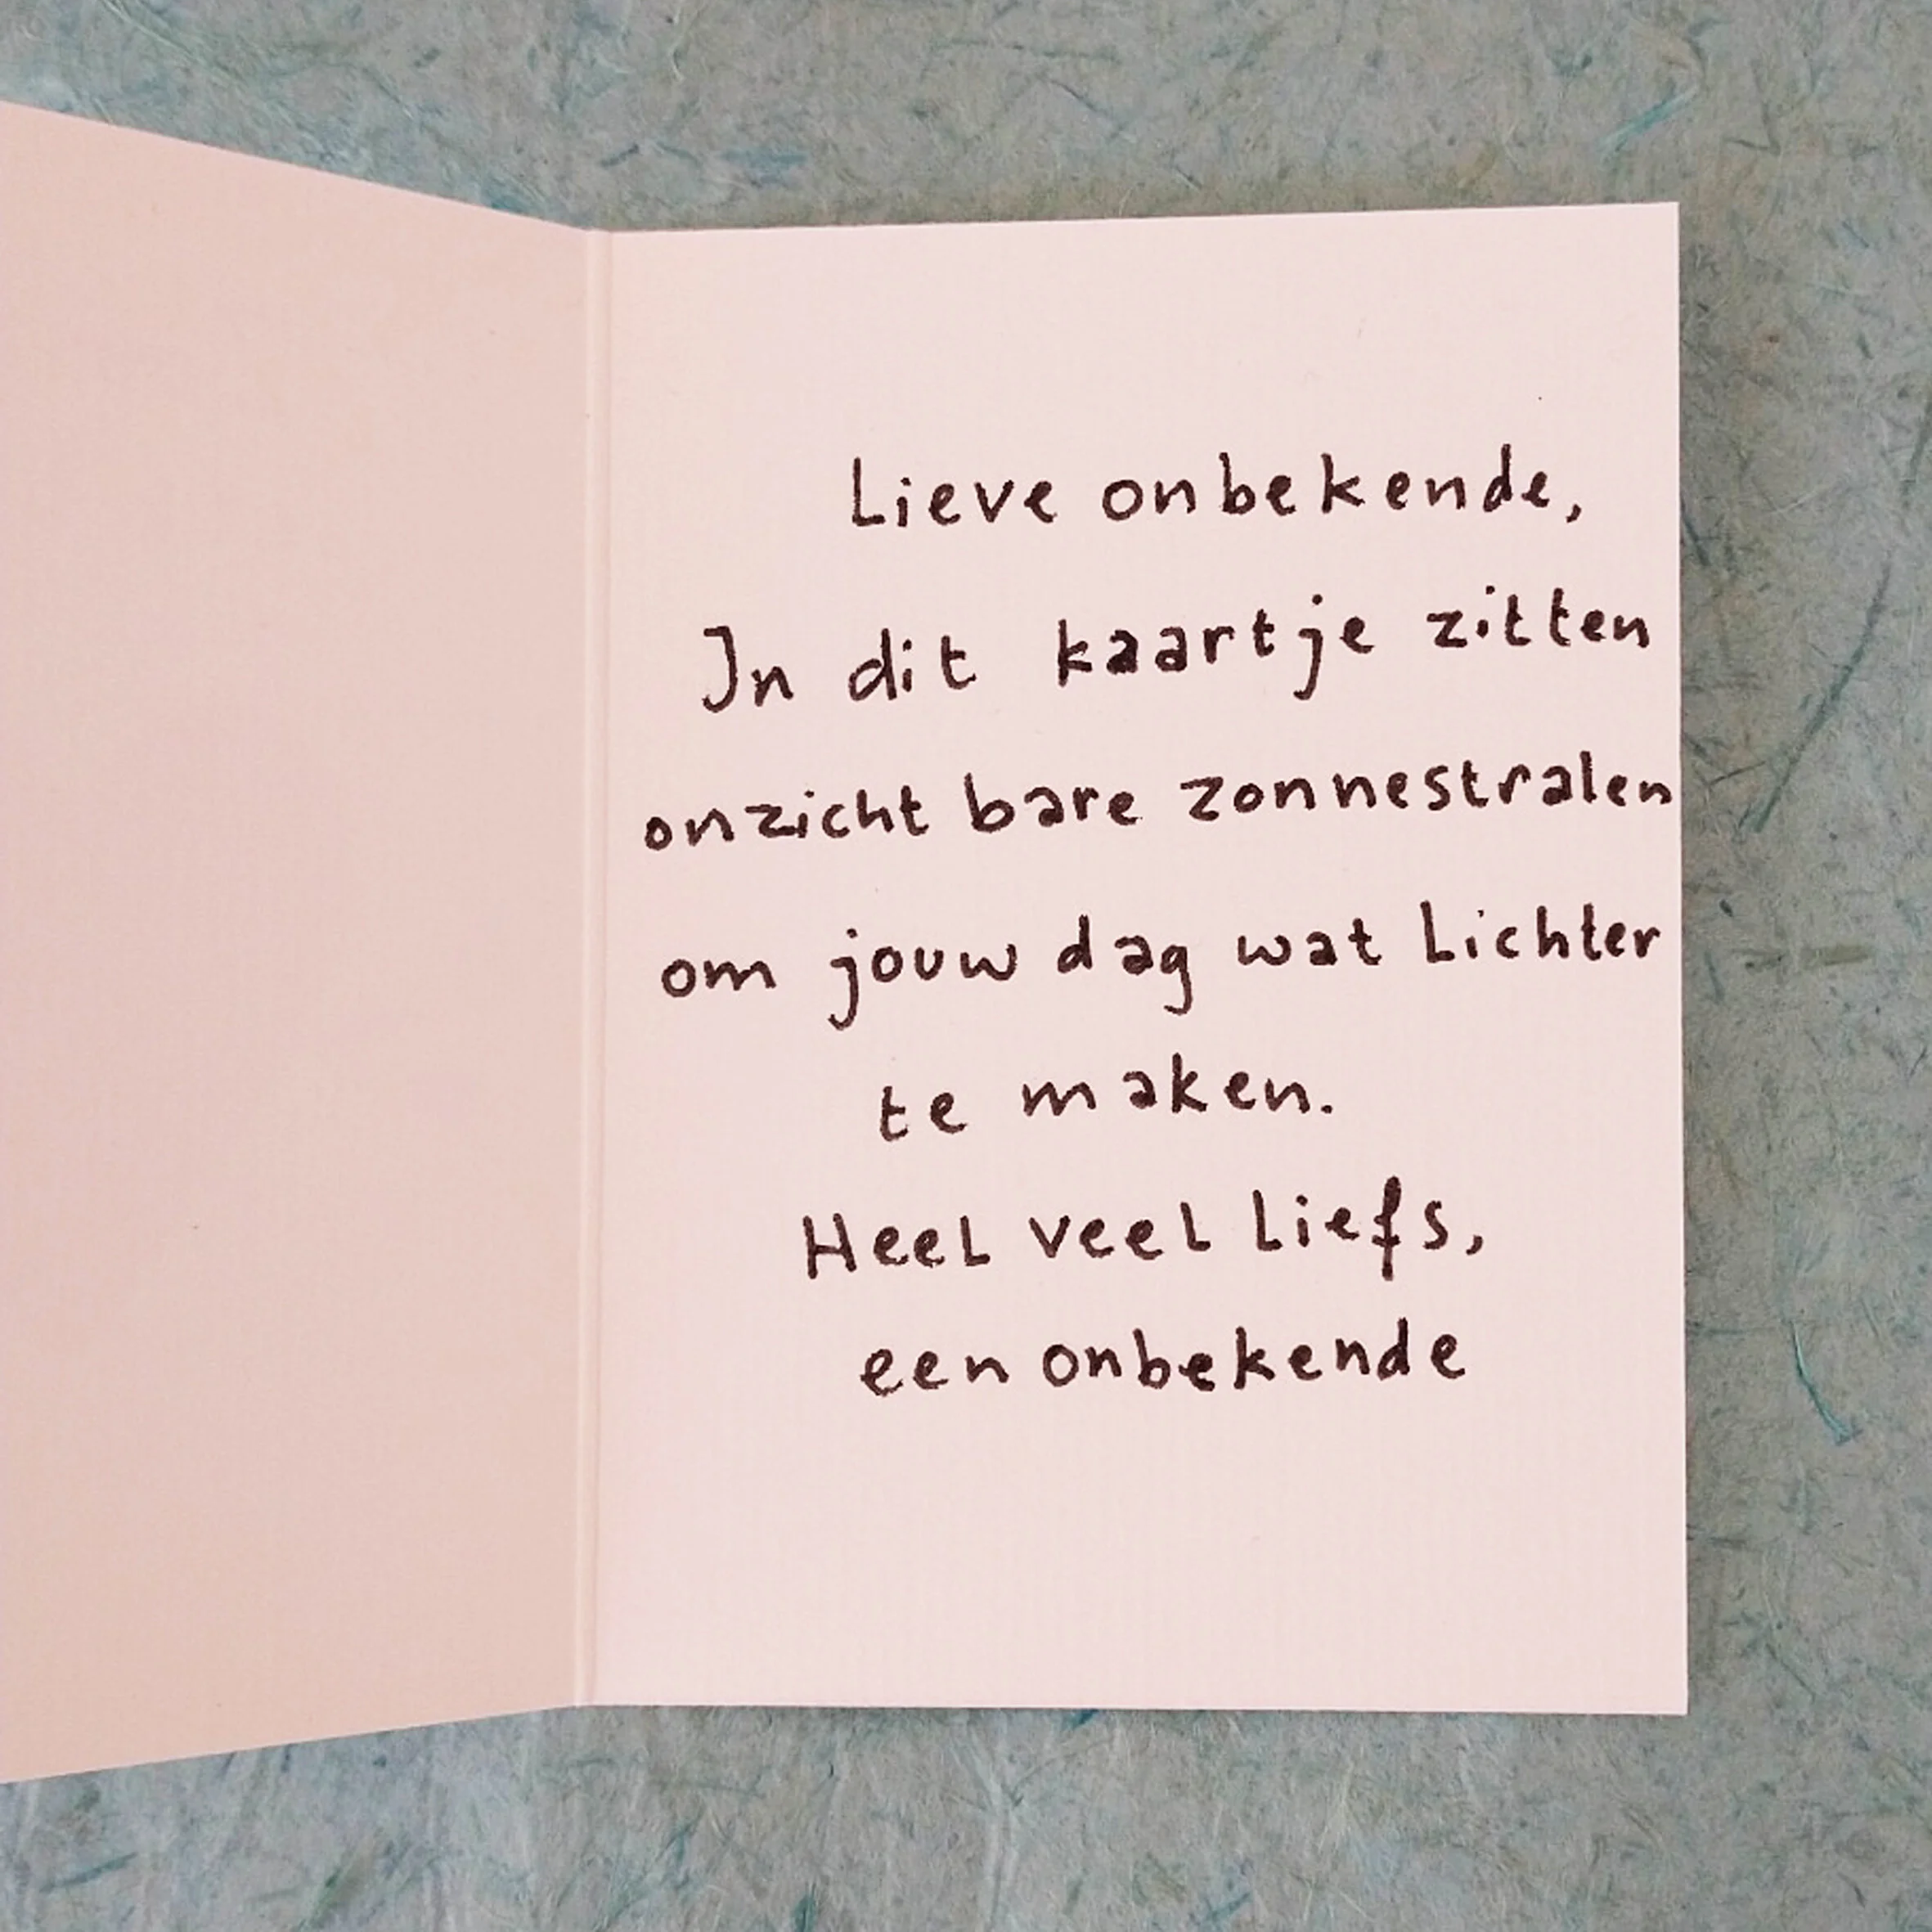 Lieve onbekende,
In dit kaartje zitten
onzicht bare zonnestralen
om jouw dag wat Lichter
te maken.
Heel veel Liefs,
een onbekende